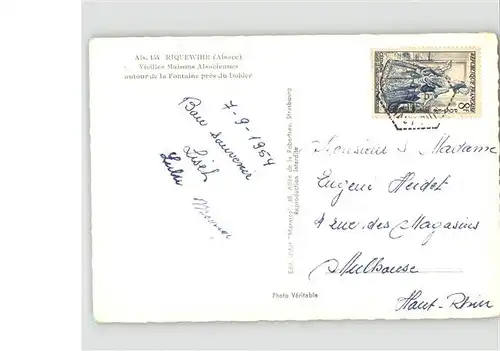 Als. 154 RIQUEWIHR (Alsace)
Vieilles Maisons Alsaciennes
autour de la Fontaine près du Dolder
7-9-1954
Bon souvenir
Lisel
Lulu
Edit. d'Art "Marasco", 40, Allée de la Robertsau, Strasbourg
Reproduction interdite
Photo Véritable
REPUBLIQUE FRANÇAISE
8F
Monsieur & Madame
Eugène Heidet
4 rue des Magasins
Mulhouse
Haut-Rhin